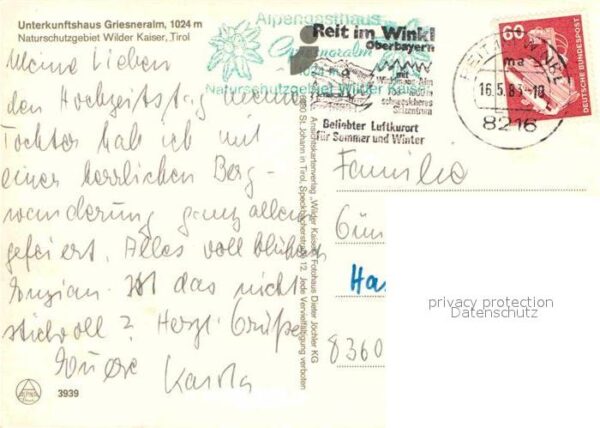 Unterkunftshaus Griesneralm, 1024 m
Naturschutzgebiet Wilder Kaiser, Tirol
Alpengasthaus
Griesneralm
1024 m
Naturschutzgebiet Wilder Kaiser
Reit im Winkl
Oberbayern
mit
Winklmoos-Alm
schneesicheres
Skizentrum
Beliebter Luftkurort
für Sommer und Winter
REIT IM WINKL
ma
16.5.83-10
8216
60
DEUTSCHE BUNDESPOST
Meine Lieben
den Hochzeitstag meiner
Tochter hab ich mit
einer herrlichen Berg-
wanderung ganz allein
gefeiert. Alles voll blühen
Enzian. Ist das nicht
stilvoll? Herzl. Grüße
Eure Karla
Familie
Gün
Ha
8360
Ansichtskartenverlag „Wilder Kaiser“ Fotohaus Dieter Jöchler KG
6380 St. Johann in Tirol, Speckbacherstraße 12. Jede Vervielfältigung verboten
3939
privacy protection
Datenschutz